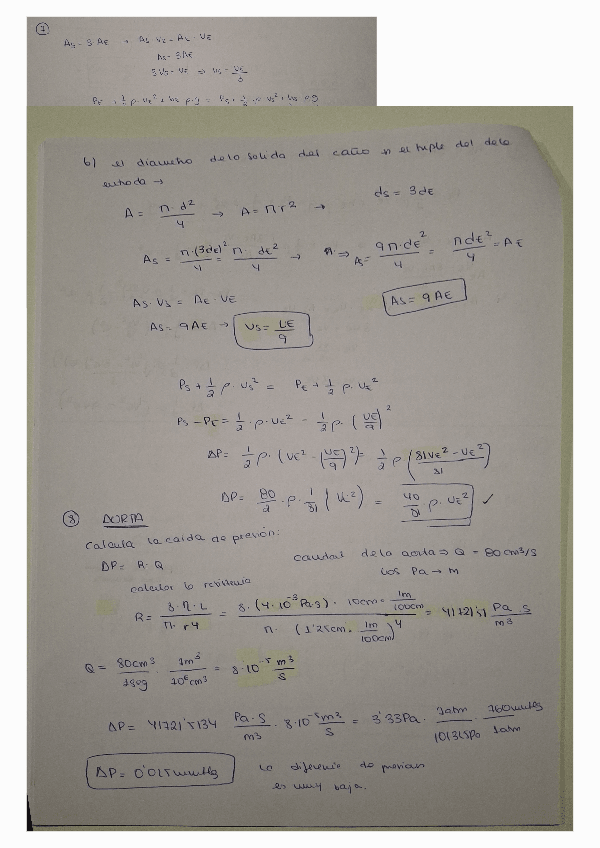 7
As = 3AE → As·Vs = AE·VE
As = 3AE
3Vs = VE ⇒ Vs = VE/3
b) el diametro de la salida del caño es el triple del de la
entrada →
ds = 3dE
A = π·d²/4 → A = πr² →
As = π·(3dE)²/4 = π·dE²/4 → ⇒ As = 9π·dE²/4 = πdE²/4 = AE
As·Vs = AE·VE
As = 9AE
As = 9AE → Vs = VE/9
Ps + 1/2 ρ·Vs² = PE + 1/2 ρ·VE²
Ps − PE = 1/2·ρ·VE² − 1/2 ρ·(VE/9)²
ΔP = 1/2 ρ·(VE² − (VE/9)²) = 1/2 ρ (81VE² − VE²/81)
ΔP = 80/2 · ρ · 1/81 (VE²) = 40/81 ρ·VE² ✓
8 AORTA
Calcula la caída de presión:
ΔP = R·Q caudal de la aorta ⇒ Q = 80 cm³/s
calcular la resistencia Pa → m
R = 8·η·L/π·r4 = 8·(4·10⁻³ Pa·s)·10cm·1m/100cm / π·(1'25cm·1m/100cm)⁴ = 41721'51 Pa·s/m³
Q = 80cm³/1seg · 1m³/10⁶cm³ = 8·10⁻⁵ m³/s
ΔP = 41721'5134 Pa·s/m³ · 8·10⁻⁵ m³/s = 3'33Pa · 1atm/101315Pa · 760mmHg/1atm
ΔP = 0'025mmHg la diferencia de presion
es muy baja.